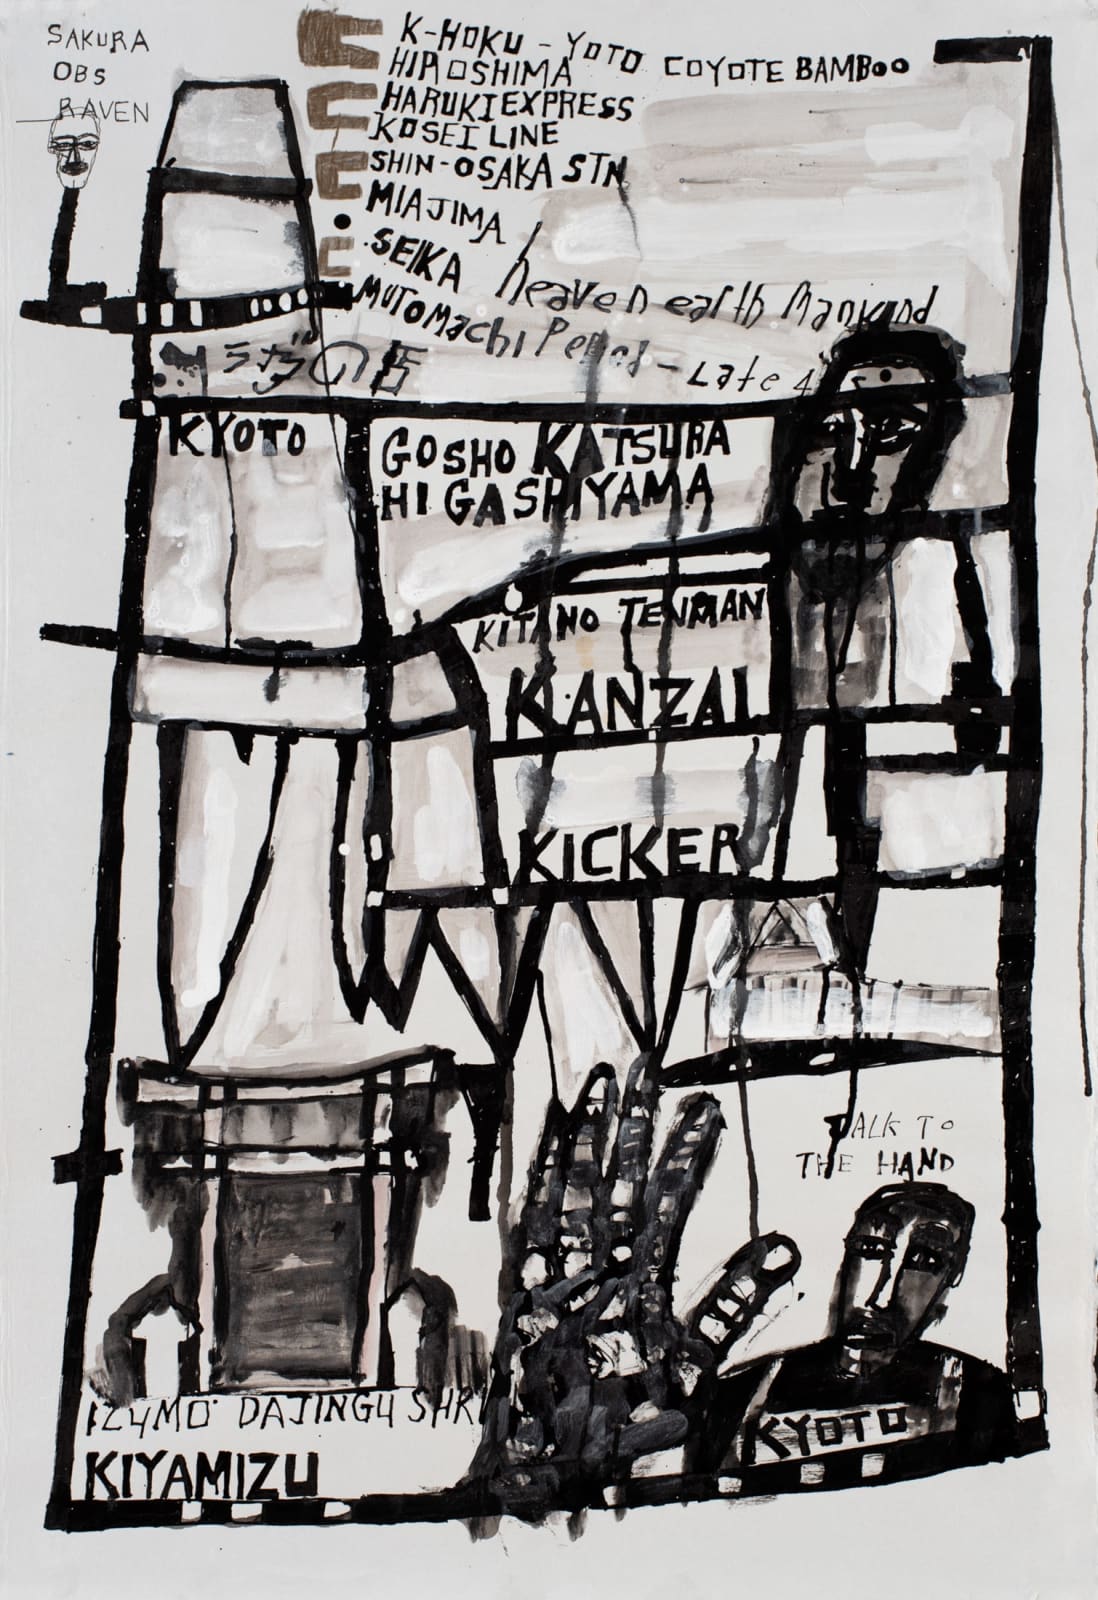 SAKURA
OBS
RAVEN
K-HOKU - YOTO COYOTE BAMBOO
HIROSHIMA
HARUKI EXPRESS
KOSEI LINE
SHIN-OSAKA STN
MIAJIMA
SEIKA heaven earth Mankind
MUTOMAchi Period - Late 4
KYOTO
GOSHO KATSURA
HIGASHIYAMA
KITANO TENMAN
KANZAI
KICKER
TALK TO
THE HAND
IZUMO DAJINGU SHRI
KIYAMIZU
KYOTO